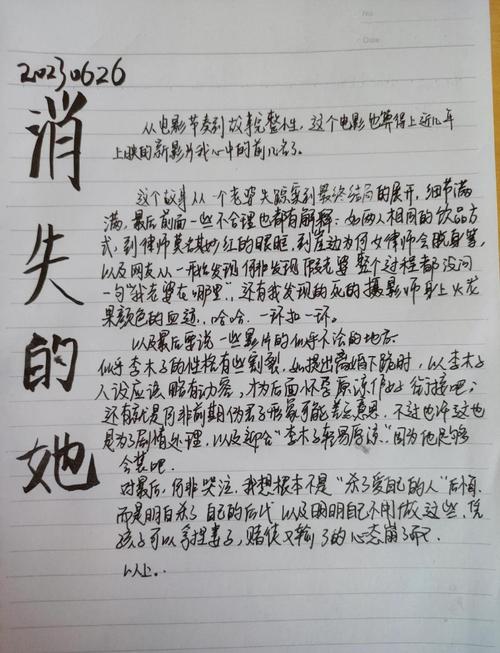 No
Date
20230626
消失的她
从电影节奏到故事完整性，这个电影也算得上近几年
上映的新影片我心中的前几名了.
这个故事从一个老婆失踪案到最终结局的展开，细节满
满，最后前面一些不合理也都有解释：如两人相同的饮品方
式，到律师莫名其妙红的眼眶，到崖边为何女律师会脱身等，
以及网友从一开始发现何非发现假老婆整个过程都没问
一句"我老婆在哪里"，还有我发现的死的摄影师身上火龙
果颜色的血迹，哈哈. 一环扣一环。
以及最后要说一些影片的似乎不洽的地方.
似乎李木子的性格有些割裂，如提出离婚下跪时，以李木子
人设应该略有动容，才为后面怀孕原谅作好衔接吧；
还有就是何非前期伪君子形象可能差点意思，不过也许这也
是为了剧情处理，以及迎合"李木子轻易原谅"因为他足够
会装吧.
对最后，何非哭泣，我想根本不是"杀了爱自己的人"后悔.
而是明白杀了自己的后代 以及明明自己不用做这些，凭
孩子可以拿捏妻子，赌徒又输了的心态崩了而已.
以上..